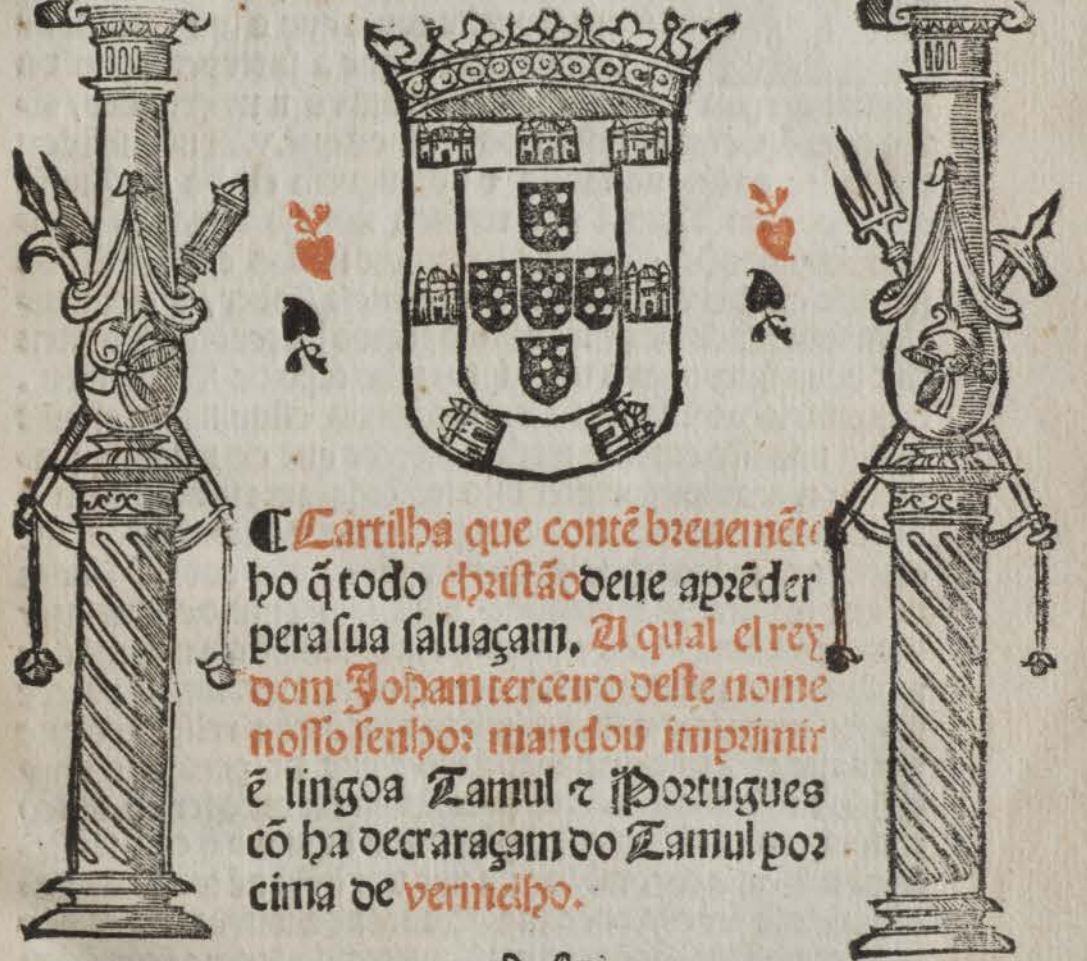 ¶ Cartilha que contẽ breuemẽte
ho q̃ todo christão deue aprẽder
pera sua saluaçam. A qual el rey
dom Joham terceiro deste nome
nosso senhor mandou imprimir
ẽ lingoa Tamul ⁊ Portugues
cõ ha decraraçam do Tamul por
cima de vermelho.